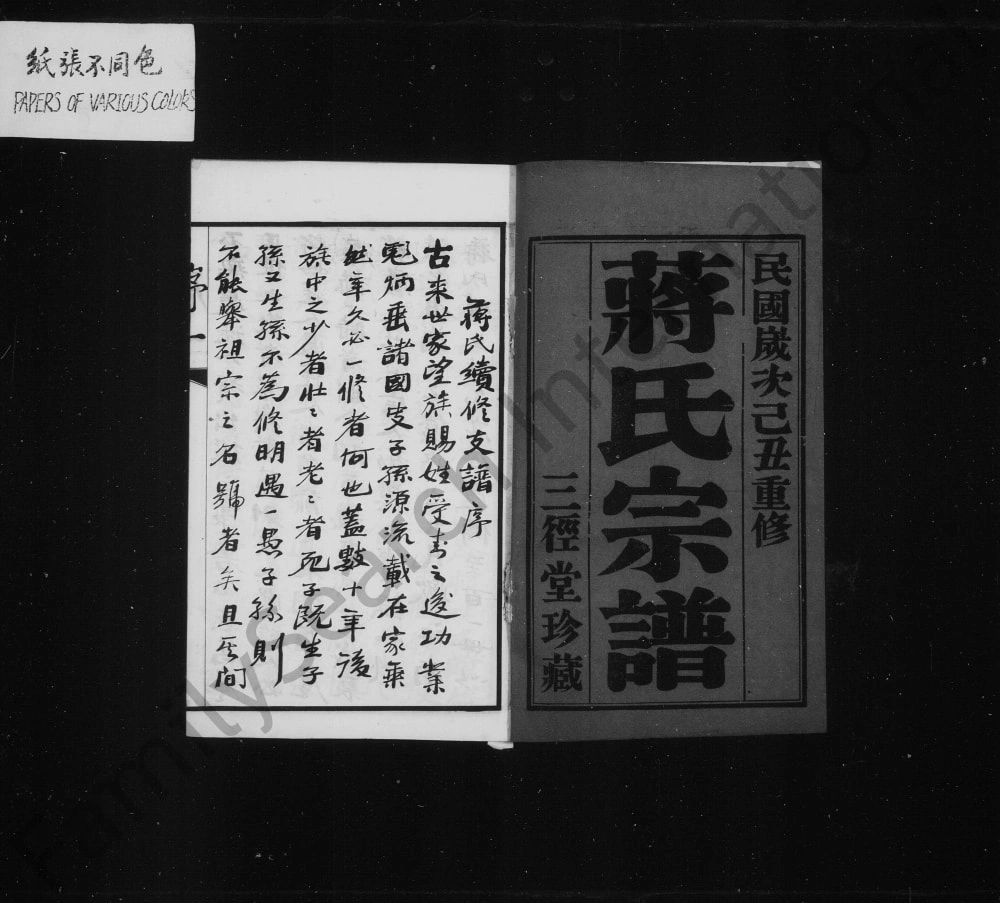 紙張不同色
PAPERS OF VARIOUS COLORS
民國嵗次己丑重修
蔣氏宗譜
三徑堂珍藏
蔣氏續修支譜序
古来世家望族賜姓受封之後功業
彪炳垂諸國史子孫源流載在家乘
然年久必一修者何也蓋數十年後
族中之少者壯〻者老〻者死子既生子
孫又生孫不為修明遇一愚子孫則
不能舉祖宗之名號者矣且其间
序一
FamilySearch International